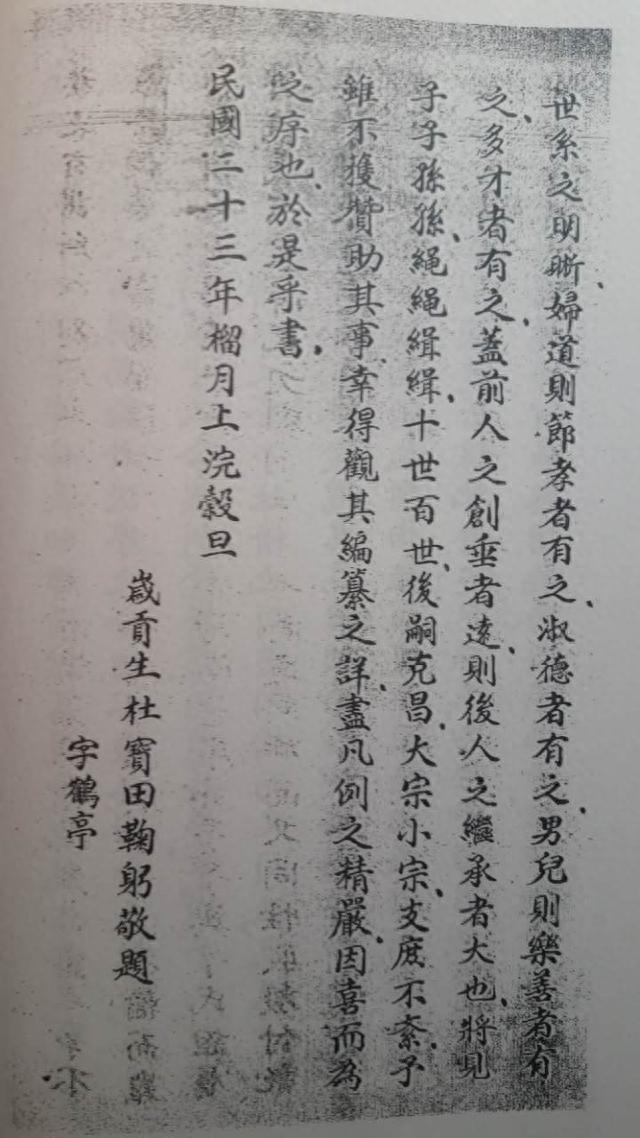 世系之明晰、婦道則節孝者有之、淑德者有之、男兒則樂善者有
之、多才者有之、蓋前人之創垂者遠、則後人之繼承者大也、將見
子子孫孫、繩繩緝緝、十世百世、後嗣克昌、大宗小宗、支庶不紊、予
雖不獲贊助其事、幸得觀其編纂之詳、盡凡例之精嚴、因喜而為
之序也、於是乎書、
民國二十三年榴月上浣穀旦
歲貢生杜寶田鞠躬敬題
字鶴亭